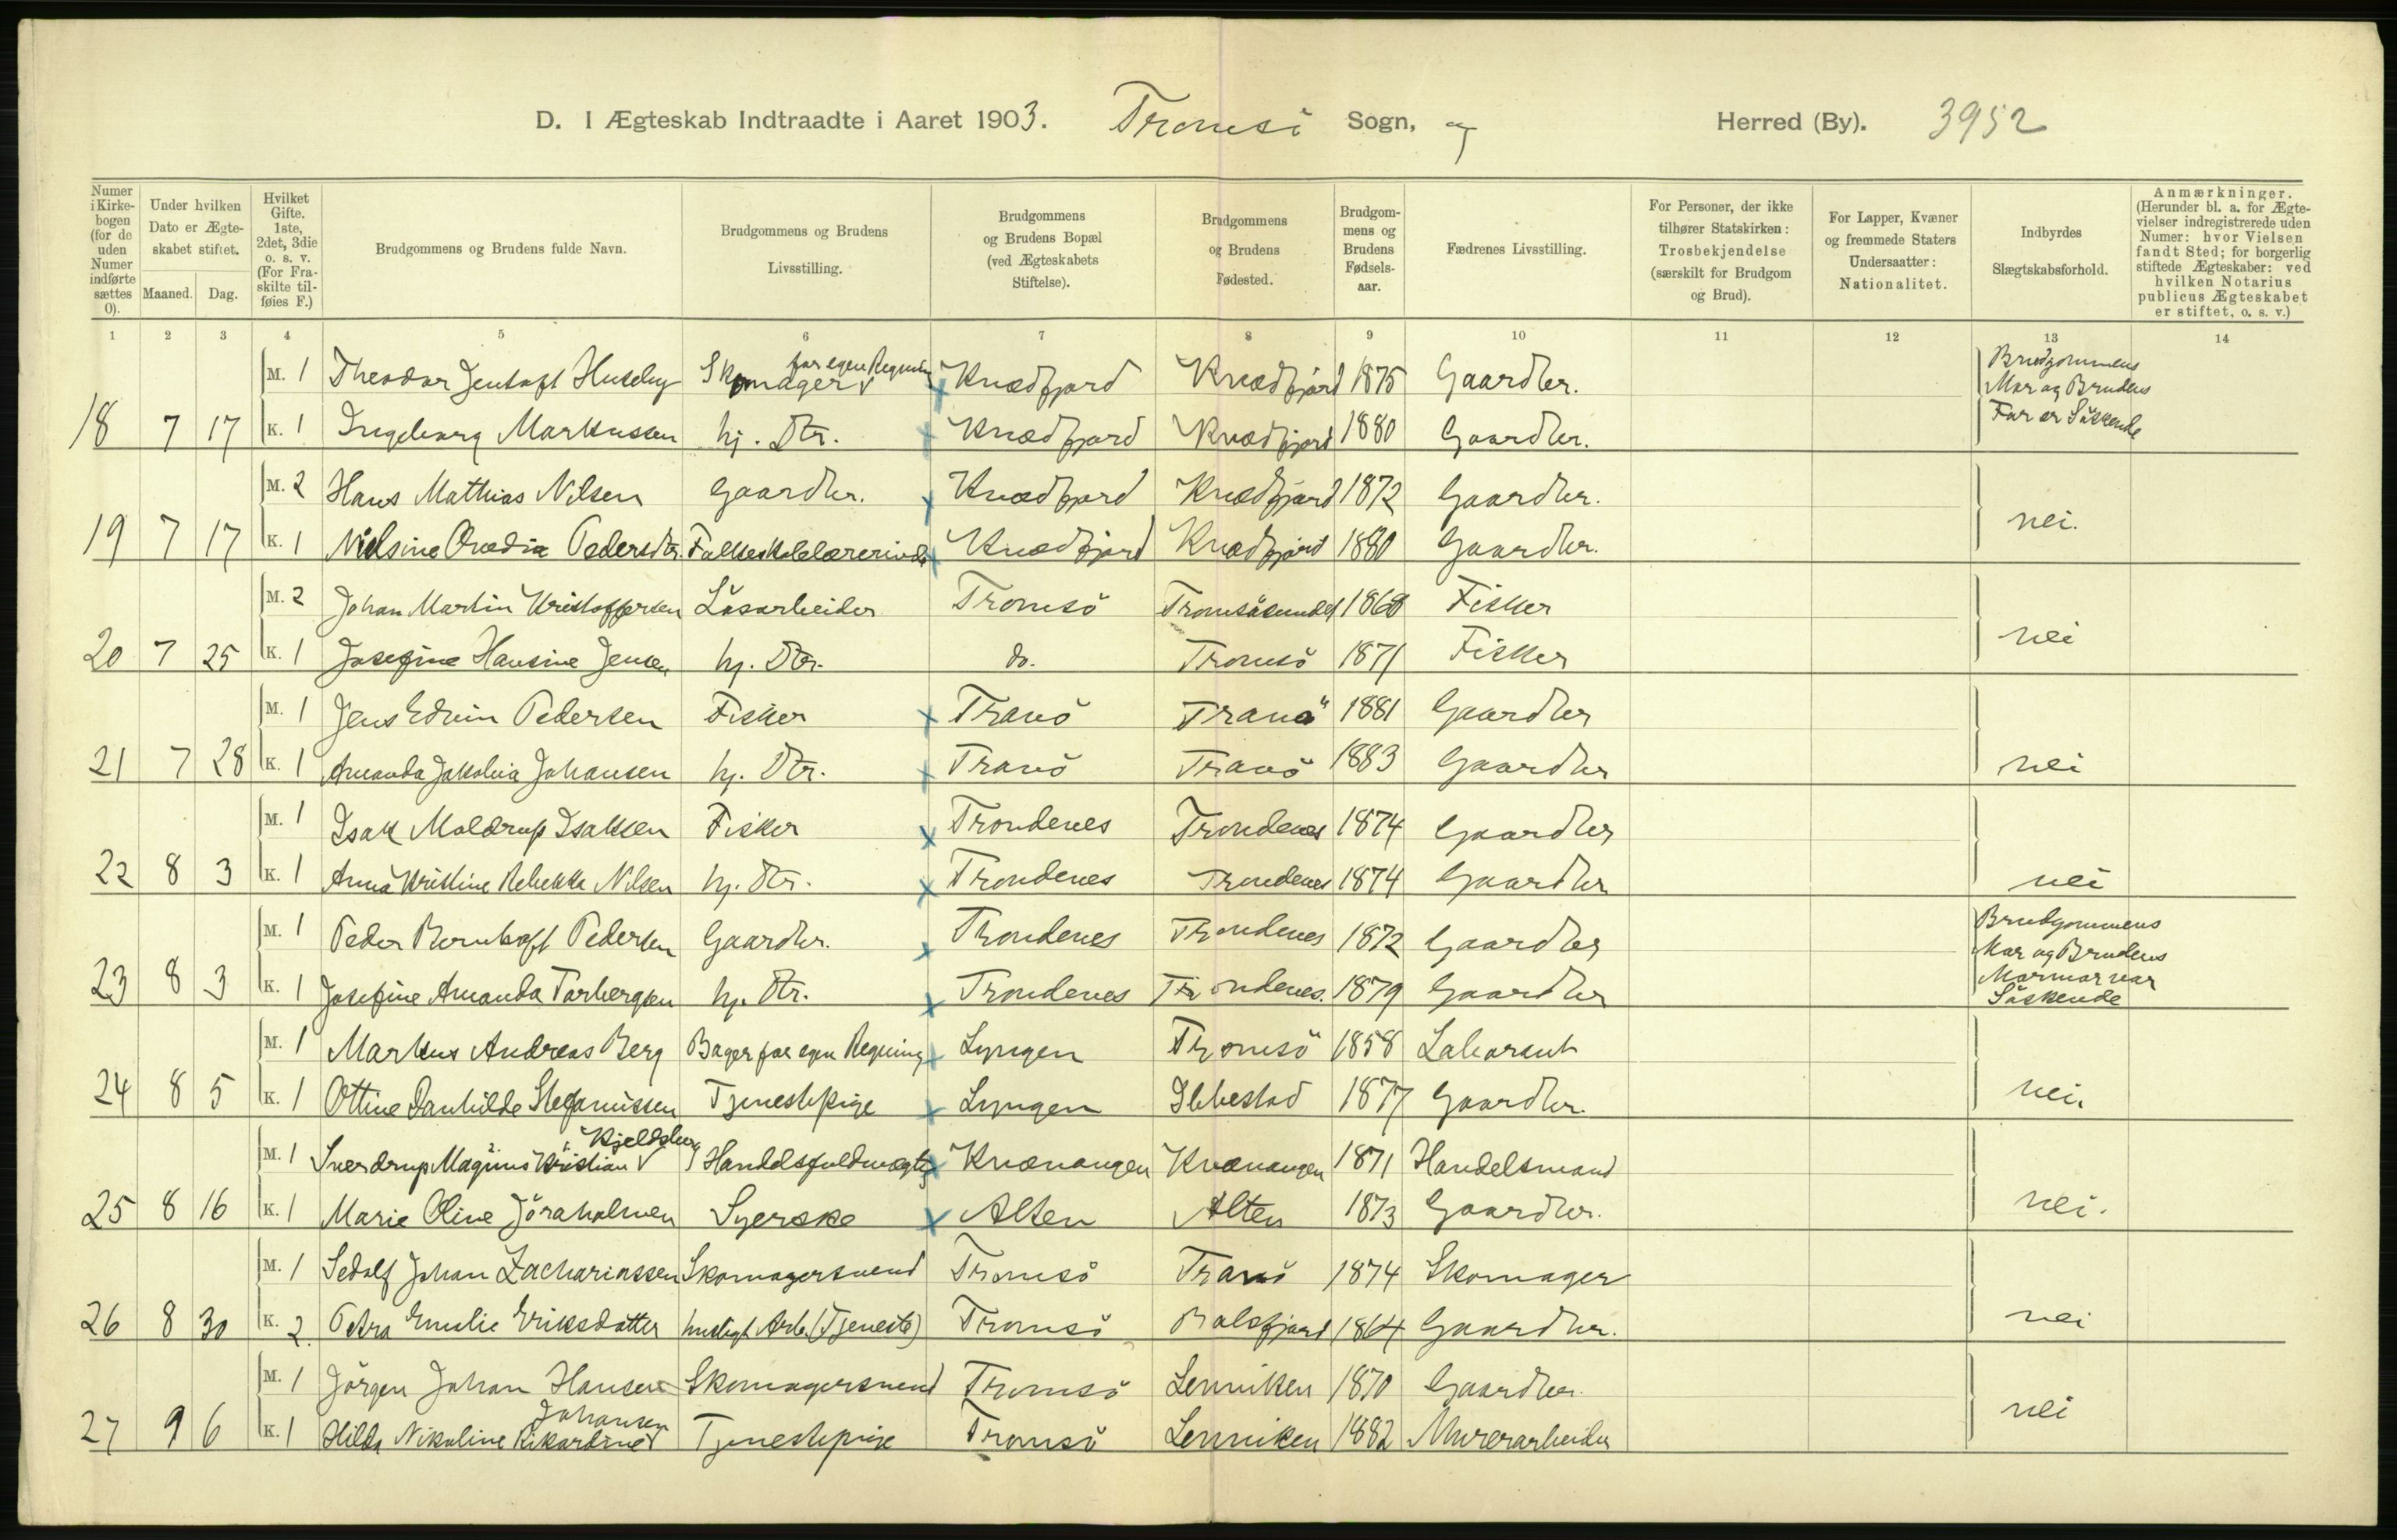 D. I Ægteskab Indtraadte i Aaret 1903. Tromsö Sogn, og Herred (By). 3952
Numer i Kirkebogen (for de uden Numer indførte sættes 0).
Under hvilken Dato er Ægteskabet stiftet.
Maaned. Dag.
Hvilket Gifte. 1ste, 2det, 3die o. s. v. (For Fraskilte tilføies F.)
Brudgommens og Brudens fulde Navn.
Brudgommens og Brudens Livsstilling.
Brudgommens og Brudens Bopæl (ved Ægteskabets Stiftelse).
Brudgommens og Brudens Fødested.
Brudgommens og Brudens Fødselsaar.
Fædrenes Livsstilling.
For Personer, der ikke tilhører Statskirken: Trosbekjendelse (særskilt for Brudgom og Brud).
For Lapper, Kvæner og fremmede Staters Undersaatter: Nationalitet.
Indbyrdes Slægtskabsforhold.
Anmærkninger. (Herunder bl. a. for Ægtevielser indregistrerede uden Numer: hvor Vielsen fandt Sted; for borgerlig stiftede Ægteskaber: ved hvilken Notarius publicus Ægteskabet er stiftet, o. s. v.)
1 2 3 4 5 6 7 8 9 10 11 12 13 14
M. 1 Theodor Jentoft Huseby Skomager for egen Regning Kvædfjord Kvædfjord 1875 Gaardbr. Brudgommens Mor og Brudens
18 7 17 K. 1 Ingeborg Markussen hj. Dtr. Kvædfjord Kvædfjord 1880 Gaardbr. Far er Söskende
M. 2 Hans Mathias Nilsen Gaardbr. Kvædfjord Kvædfjord 1872 Gaardbr.
19 7 17 K. 1 Nielsine Ovedia Pedersdtr. Folkeskolelærerinde Kvædfjord Kvædfjord 1880 Gaardbr. nei.
M. 2 Johan Martin Kristoffersen Lösarbeider Tromsö Tromsösundet 1868 Fisker
20 7 25 K. 1 Josefine Hansine Jensen hj. Dtr. do. Tromsö 1871 Fisker nei
M. 1 Jens Edvin Pedersen Fisker Tranö Tranö 1881 Gaardbr
21 7 28 K. 1 Amanda Jakobia Johansen hj. Dtr. Tranö Tranö 1883 Gaardbr nei
M. 1 Isak Moldrup Isaksen Fisker Trondenes Trondenes 1874 Gaardbr
22 8 3 K. 1 Anna Kristine Rebekka Nilsen hj. Dtr. Trondenes Trondenes 1874 Gaardbr nei
M. 1 Peder Bernhoft Pedersen Gaardbr. Trondenes Trondenes 1872 Gaardbr Brudgommens Mor og Brudens
23 8 3 K. 1 Josefine Amanda Torbergsen hj. Dtr. Trondenes Trondenes. 1879 Gaardbr Mormor var Söskende
M. 1 Markus Andreas Berg Bager for egen Regning Lyngen Tromsö 1858
24 8 5 K. 1 Ottine Danhilde Stefanussen Tjenestepige Lyngen Ibbestad 1877 Gaardbr. nei.
M. 1 Sverdrup Magnus Kristian Kjeldsberg Handelsfuldmægtig Kvænangen Kvænangen 1871 Handelsmand
25 8 16 K. 1 Marie Oline Jöraholmen Syerske Alten Alten 1873 Gaardbr. nei.
M. 1 Sedolf Johan Zachariassen Skomagersvend Tromsö Tranö 1874 Skomager
26 8 30 K. 2. Petra Emelie Eriksdatter husligt Arb. (Tjeneste) Tromsö Balsfjord 1864 Gaardbr. nei
M. 1 Jörgen Johan Hansen Skomagersvend Tromsö Lenviken 1870 Gaardbr.
27 9 6 K. 1 Hilda Nikoline Rikardine Johansen Tjenestepige Tromsö Lenviken 1882 Murerarbeider nei